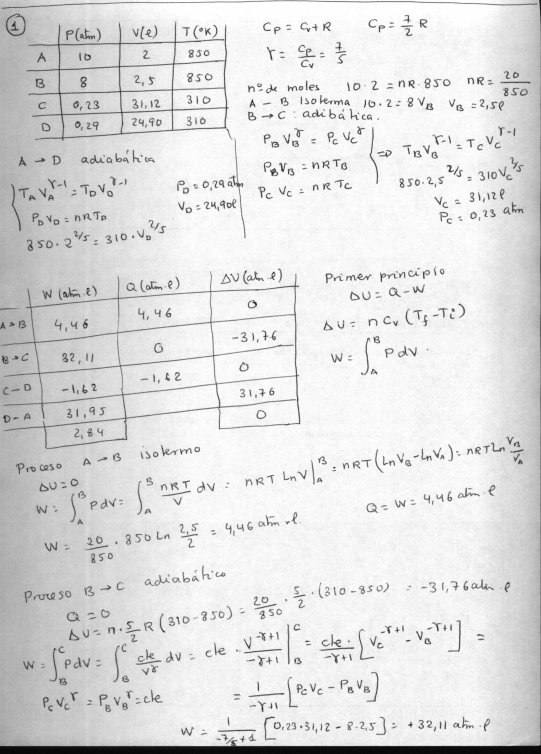 1
P(atm) V(l) T(ºK)
A 10 2 850
B 8 2,5 850
C 0,23 31,12 310
D 0,29 24,90 310
Cp = Cv+R Cp = 7/2 R
γ = Cp/Cv = 7/5
nº de moles 10·2 = nR·850 nR = 20/850
A – B Isoterma 10·2 = 8 VB VB = 2,5l
B → C : adibática.
PB VB^γ = PC VC^γ
PB VB = nRTB
PC VC = nRTC
=> TB VB^γ-1 = TC VC^γ-1
850·2,5^2/5 = 310 VC^2/5
VC = 31,12l
PC = 0,23 atm
A → D adiabática
TA VA^γ-1 = TD VD^γ-1
PD VD = nRTD
850·2^2/5 = 310·VD^2/5
PD = 0,29 atm
VD = 24,90l
W (atm·l) Q (atm·l) ΔU (atm·l)
A→B 4,46 4,46 0
B→C 32,11 0 -31,76
C–D -1,62 -1,62 0
D-A 31,95 31,76
2,84 0
Primer principio
ΔU = Q-W
ΔU = n Cv (Tf-Ti)
W = ∫_A^B P dV.
Proceso A → B isotermo
ΔU=0
W = ∫_A^B P dV = ∫_A^B nRT/V dV = nRT Ln V |_A^B = nRT (Ln VB - Ln VA) = nRT Ln VB/VA
W = 20/850 · 850 Ln 2,5/2 = 4,46 atm·l.
Q = W = 4,46 atm·l
Proceso B → C adiabático
Q = 0
ΔU = n·5/2 R (310-850) = 20/850 · 5/2 · (310-850) = -31,76 atm·l
W = ∫_B^C P dV = ∫_B^C cte/V^γ dV = cte · V^-γ+1/-γ+1 |_B^C = cte·/-γ+1 [VC^-γ+1 - VB^-γ+1] =
PC VC^γ = PB VB^γ = cte
= 1/-γ+1 [PC VC - PB VB]
W = 1/-7/5+1 [0,23·31,12 - 8·2,5] = +32,11 atm·l